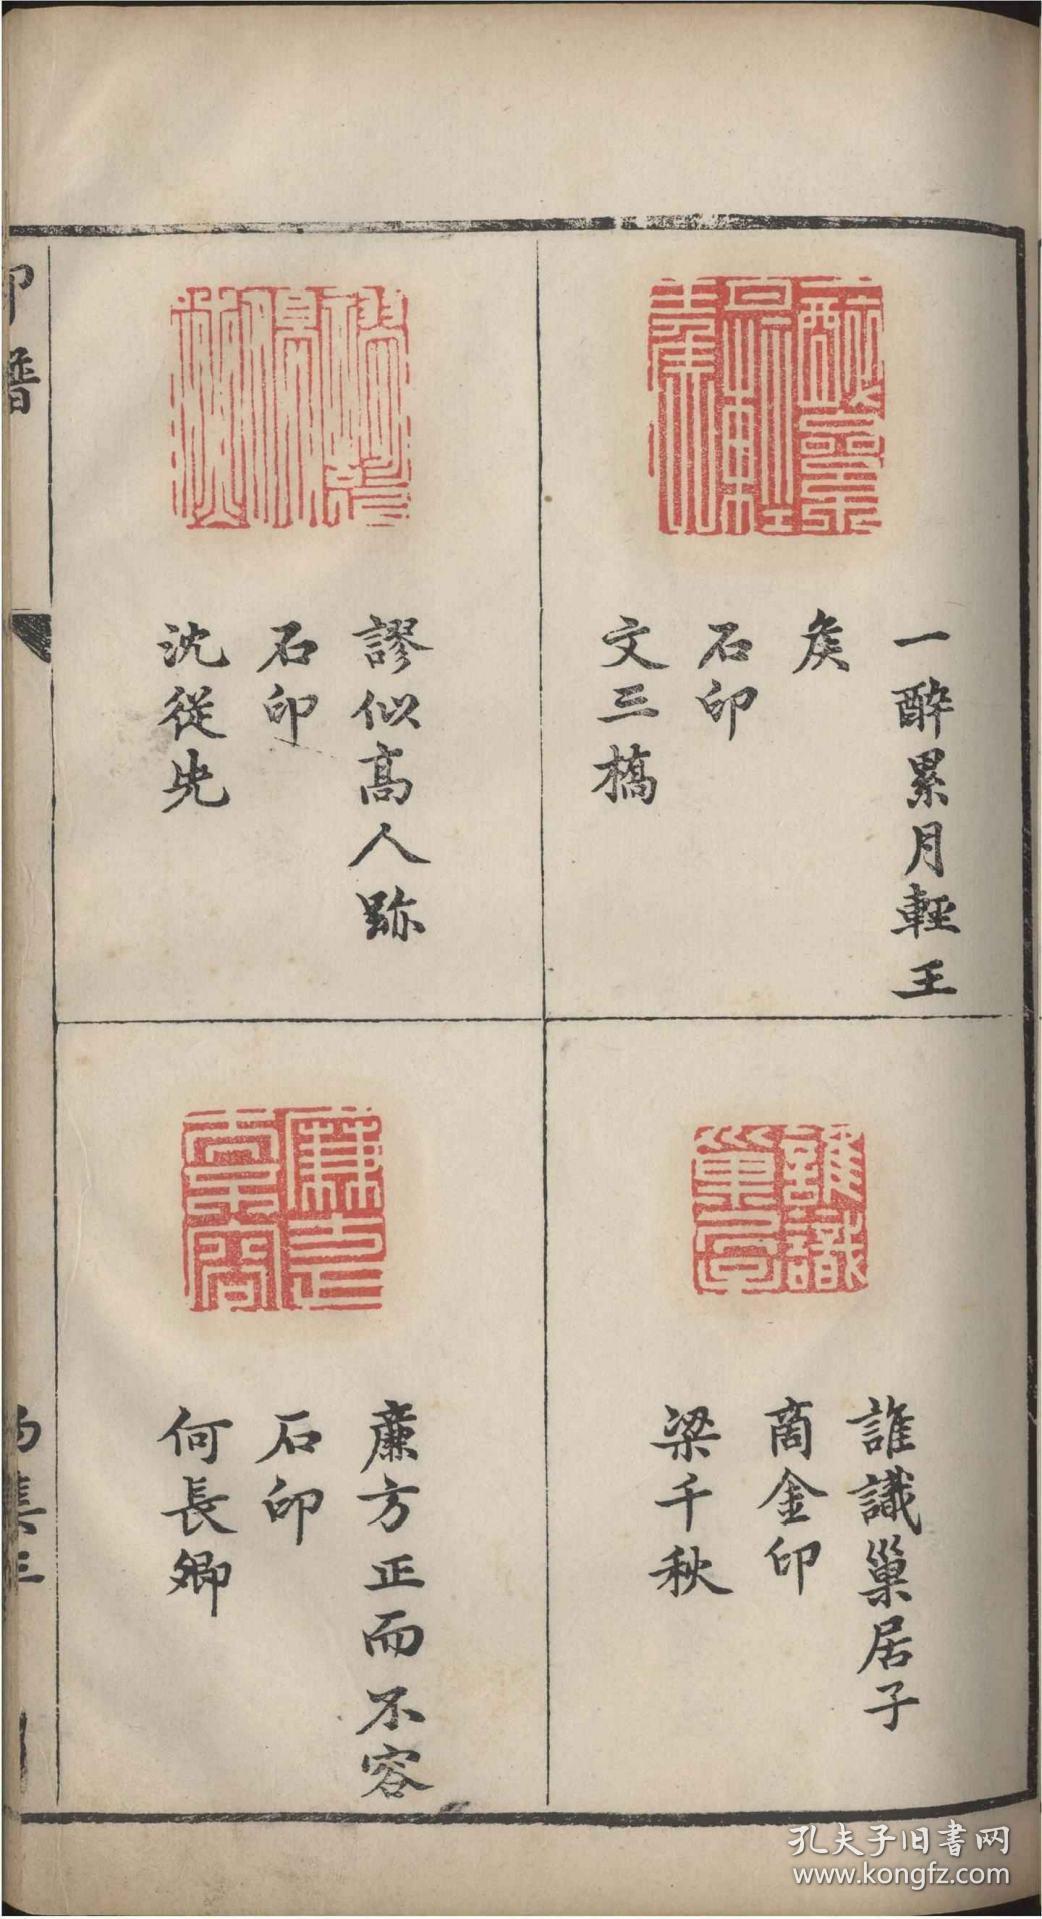 一醉累月輕王
矦
石印
文三橋
謬似髙人跡
石印
沈從先
誰識巢居子
商金印
梁千秋
廉方正而不容
石印
何長卿
印譜
集三
孔夫子旧書网
www.kongfz.com